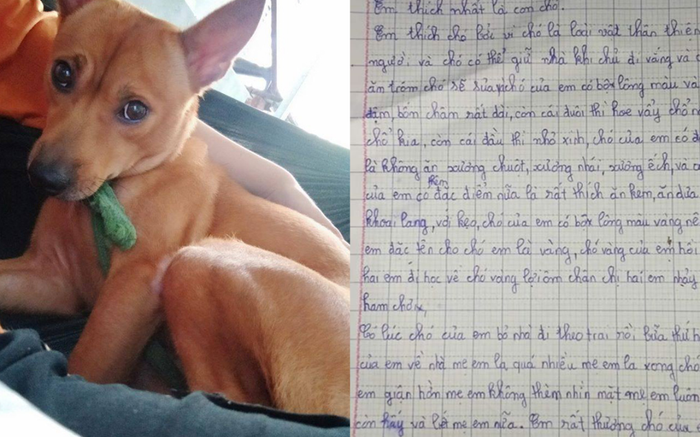 Em thích nhất là con chó.
Em thích chó bởi vì chó là loài vật thân thiện
người và chó có thể giữ nhà khi chủ đi vắng và c
ăn trộm chó sẽ sủa, chó của em có bộ lông màu và
đậm, bốn chân rất dài, còn cái đuôi thì hoe vẩy chỗ n
chỗ kia, còn cái đầu thì nhỏ xinh, chó của em có đ
là không ăn xương chuột, xương nhái, xương ếch, và
của em có đặc điểm nữa là rất thích ăn kem, ăn dưa
kem
khoai lang, vỏ kẹo, chó của em có bộ lông màu vàng nê
em đặc tên cho chó em là vàng, chó vàng của em hôi
hai em đi học về chó vàng lại ôm chân chị hai em nhảy
ham chơi,
Có lúc chó của em bỏ nhà đi theo trai rồi bữa thứ h
của em về nhà mẹ em la quá nhiều mẹ em la xong chó
em giận hờn mẹ em không thèm nhìn mặt mẹ em luôn
còn háy và liết mẹ em nữa. Em rất thương chó của